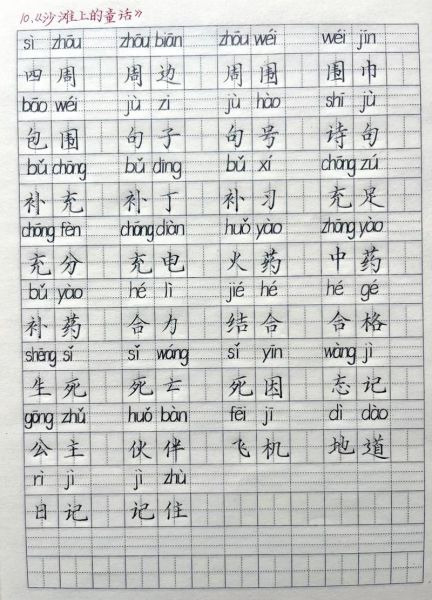 10.《沙滩上的童话》
sì zhōu zhōu biān zhōu wéi wéi jīn
四周 周边 周围 围巾
bāo wéi jù zi jù hào shī jù
包围 句子 句号 诗句
bǔ chōng bǔ ding bǔ xí chōng zú
补充 补丁 补习 充足
chōng fèn chōng diàn huǒ yào zhōng yào
充分 充电 火药 中药
bǔ yào hé lì jié hé hé gé
补药 合力 结合 合格
shēng sǐ sǐ wáng sǐ yīn wàng jì
生死 死亡 死因 忘记
gōng zhǔ huǒ bàn fēi jī dì dào
公主 伙伴 飞机 地道
rì jì jì zhù
日记 记住